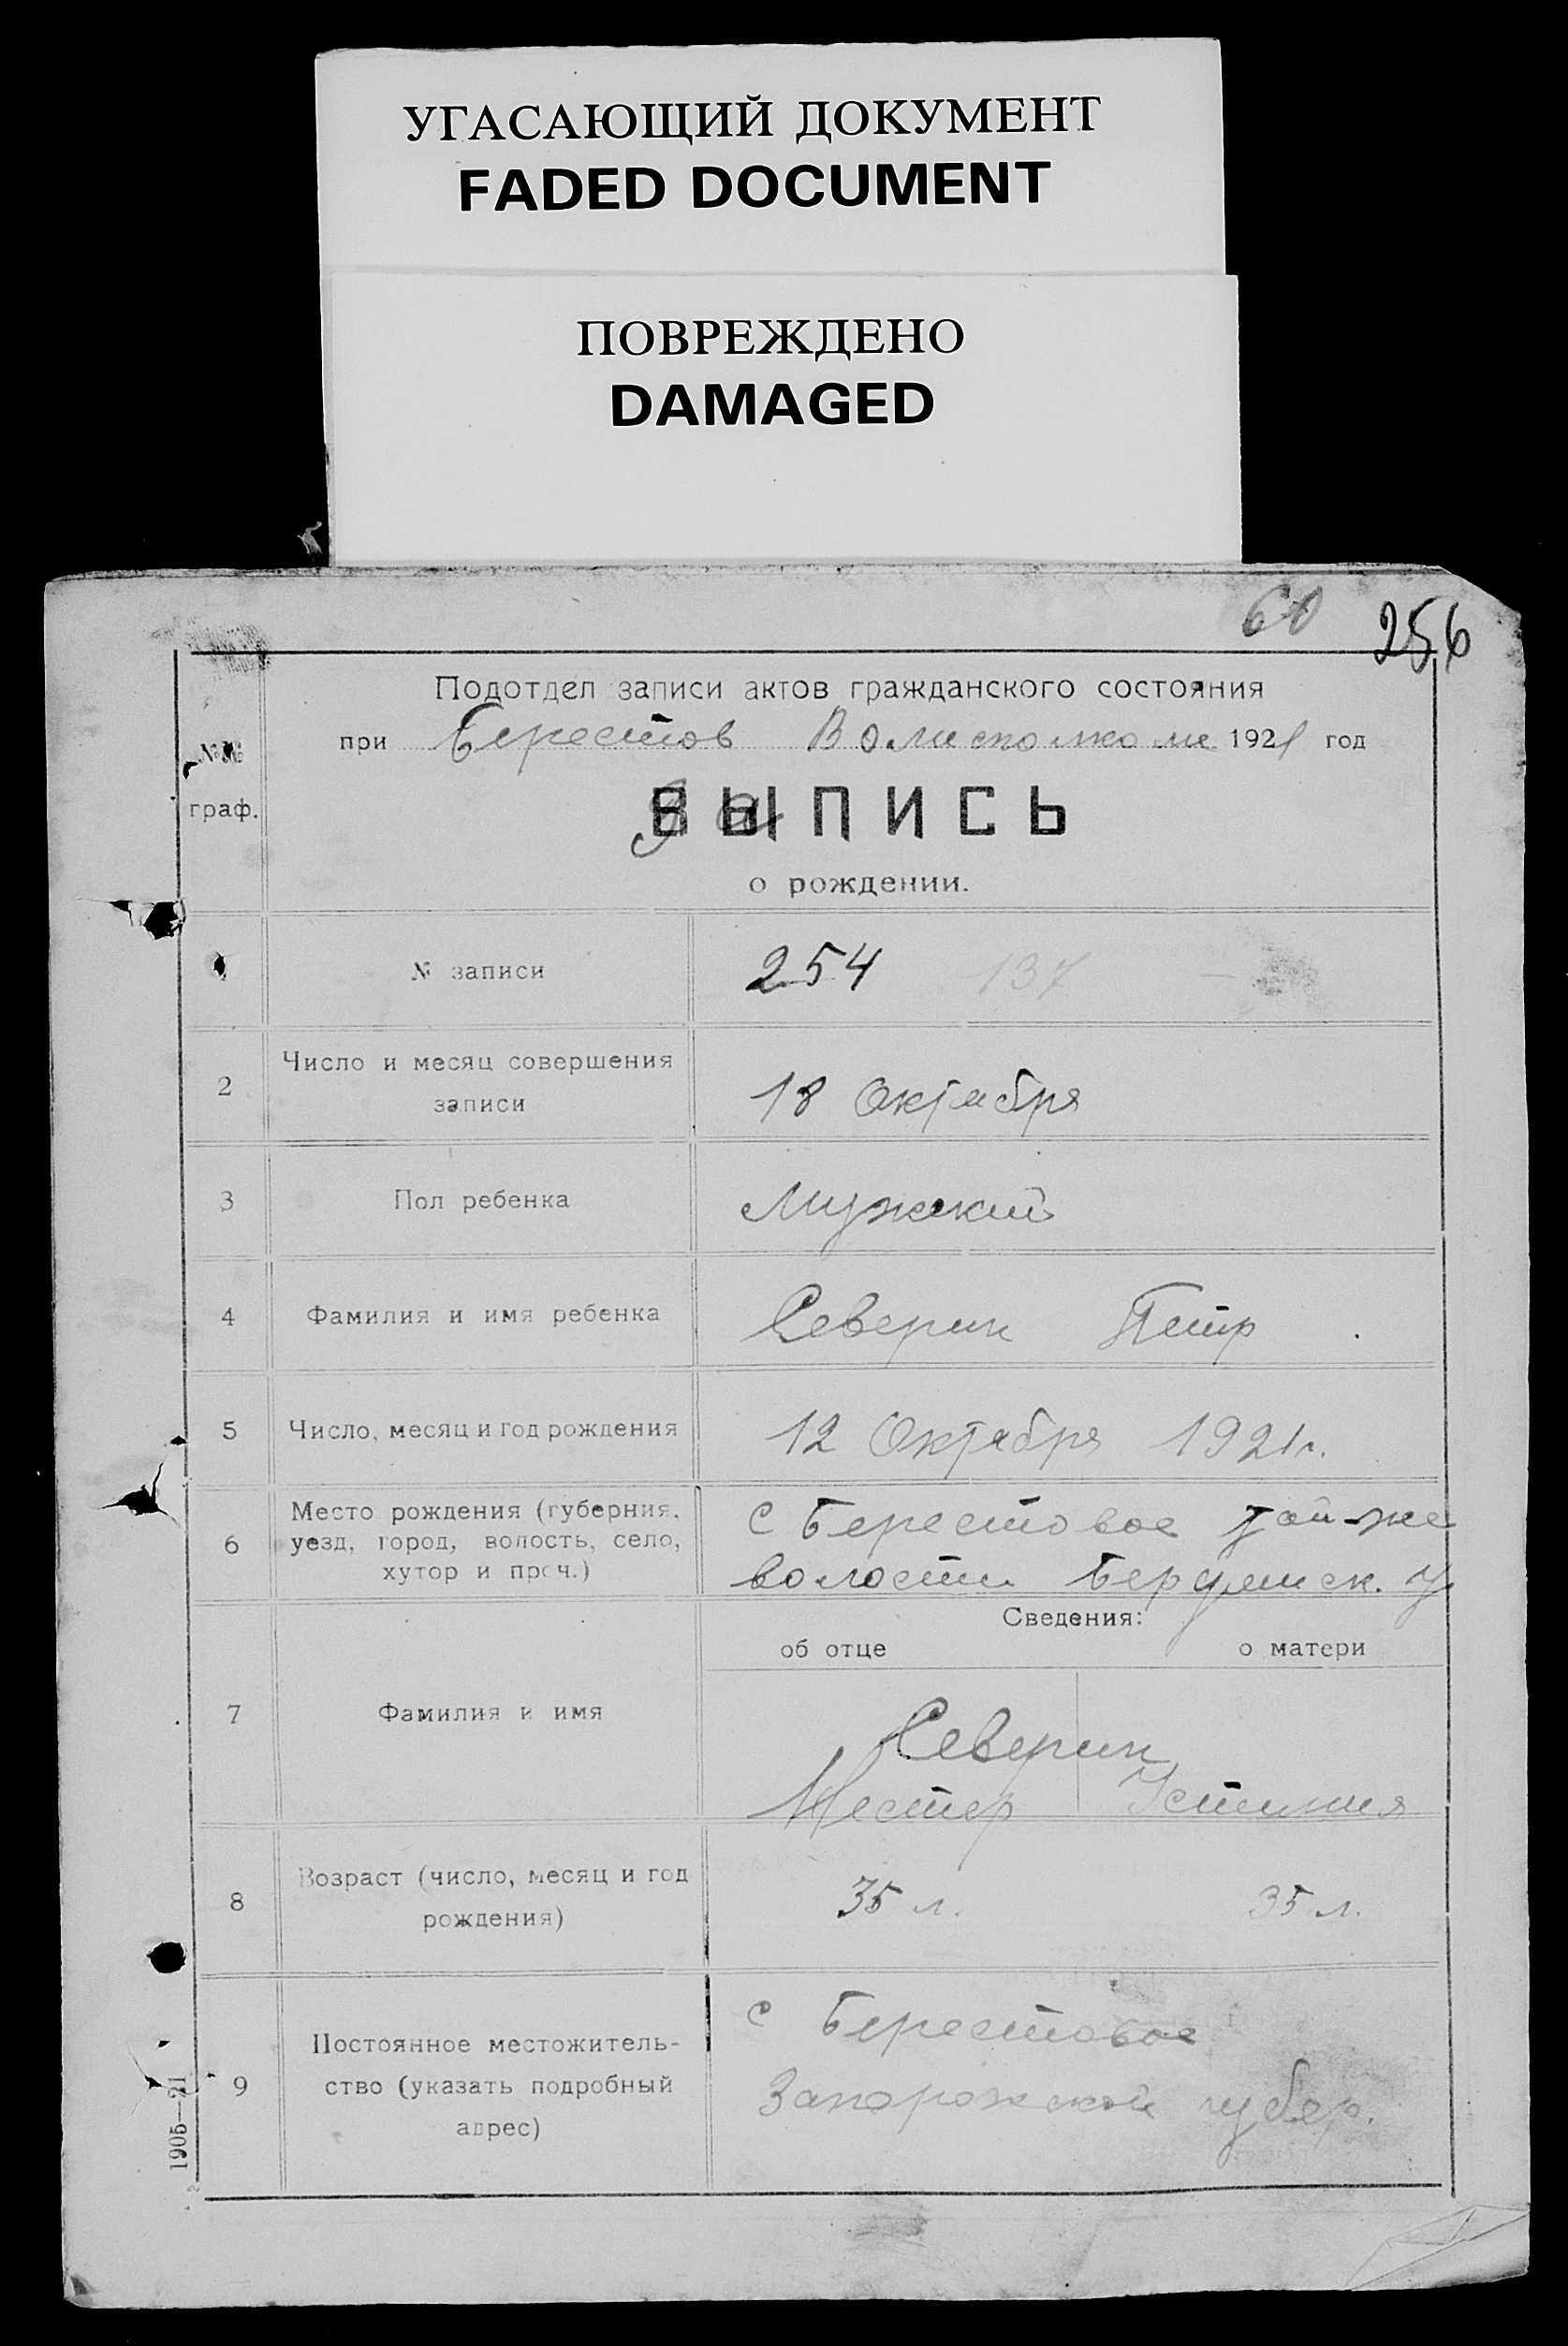 УГАСАЮЩИЙ ДОКУМЕНТ
FADED DOCUMENT
ПОВРЕЖДЕНО
DAMAGED
60 256
Подотдел записи актов гражданского состояния
при Берестов Волисполкоме 1921 год
№№
граф.
ВЫПИСЬ
За
о рождении.
1 № записи 254 137
2 Число и месяц совершения
записи
18 Октября
3 Пол ребенка Мужский
4 Фамилия и имя ребенка Северин Петр
5 Число, месяц и год рождения 12 Октября 1921 г.
6 Место рождения (губерния,
уезд, город, волость, село,
хутор и проч.)
с Берестовое той-же
волости Бердянск. у
Сведения:
об отце о матери
7 Фамилия и имя
Северин
Нестер Устиния
8 Возраст (число, месяц и год
рождения)
35 л. 35 л.
9 Постоянное местожитель-
ство (указать подробный
адрес)
с Берестовое
Запорожской губер.
1905—21